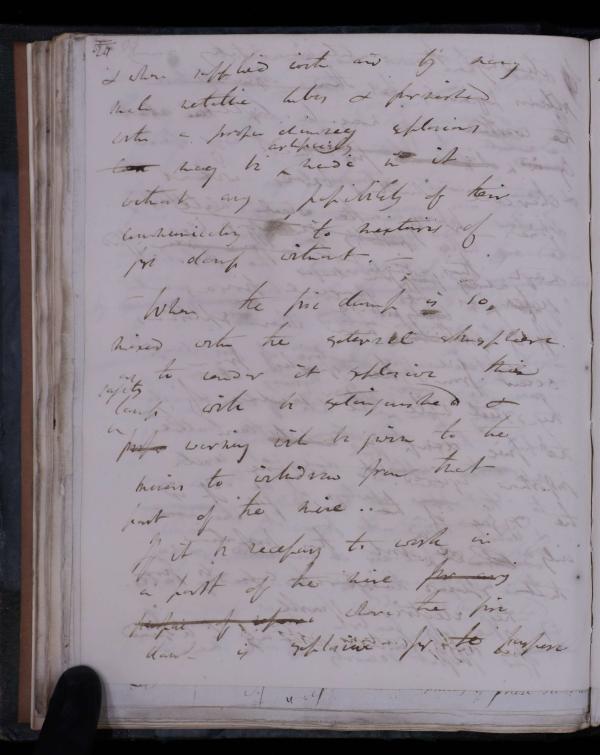 & when supplied with air by many
such metallic tubes & furnished
with a proper chimney explosions
artificially
may be made in it
without any possibility of their
communicating to mixtures of
fire damp without. —
When the fire damp is so
mixed with the external atmosphere
as to render it explosive this
safety
lamp will be extinguished &
warning will be given to the
miners to withdraw from that
part of the mine ..
If it be necessary to work in
a part of the mine for any
purpose where the fire
damp is explosive for the purpose